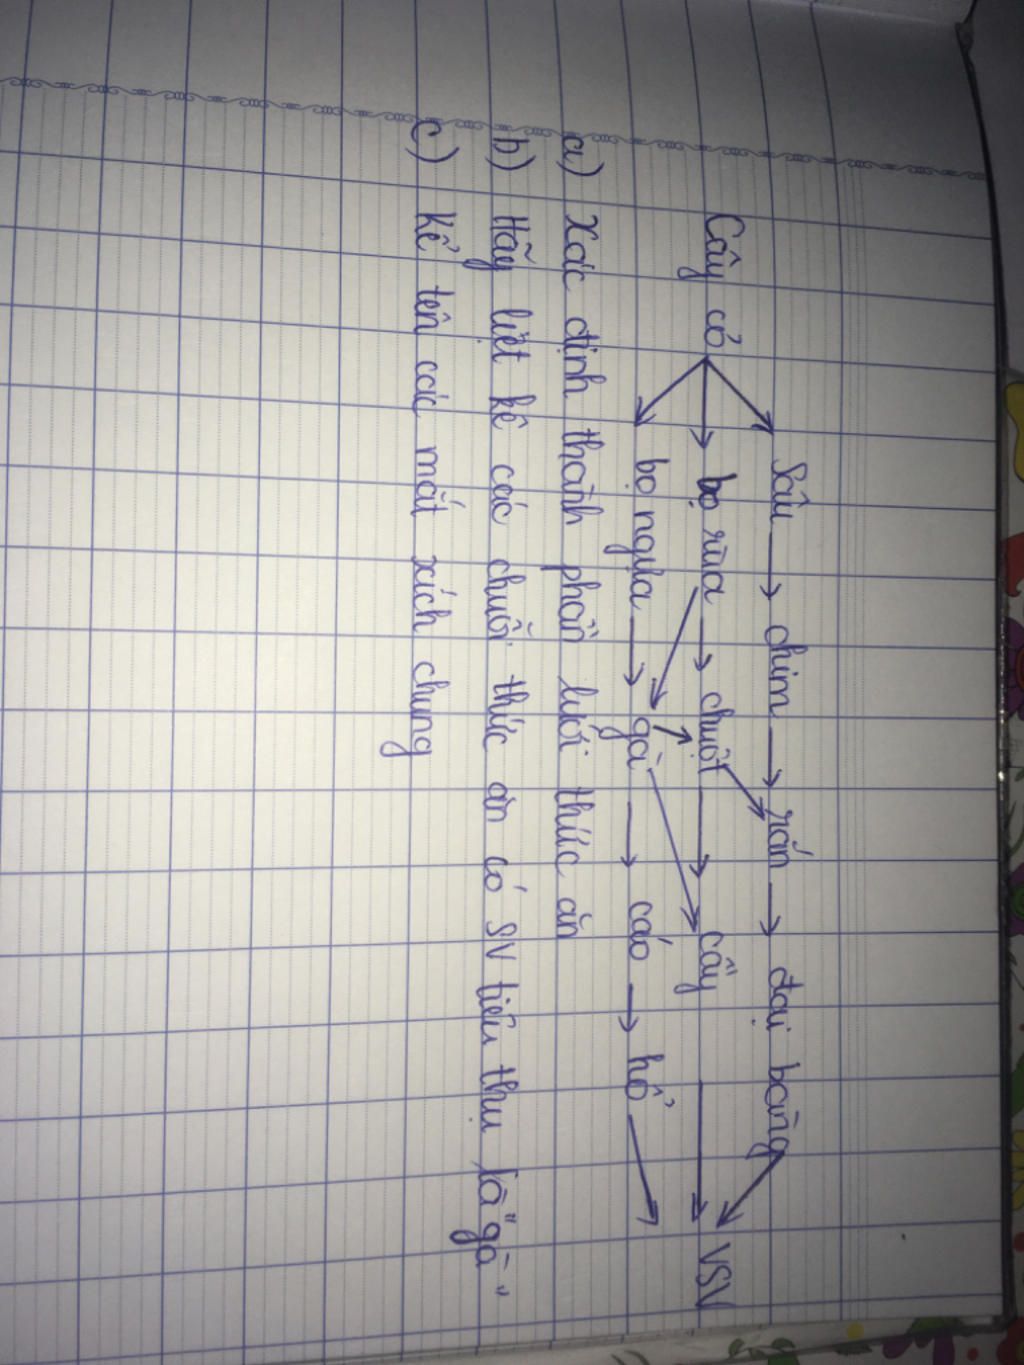 Sâu → chim → rắn → đại bàng
Cây cỏ → bọ rùa → chuột → cầy → VSV
bọ ngựa → gà → cáo → hổ
a) Xác định thành phần lưới thức ăn
b) Hãy liệt kê các chuỗi thức ăn có SV tiêu thụ là "gà"
c) Kể tên các mắt xích chung